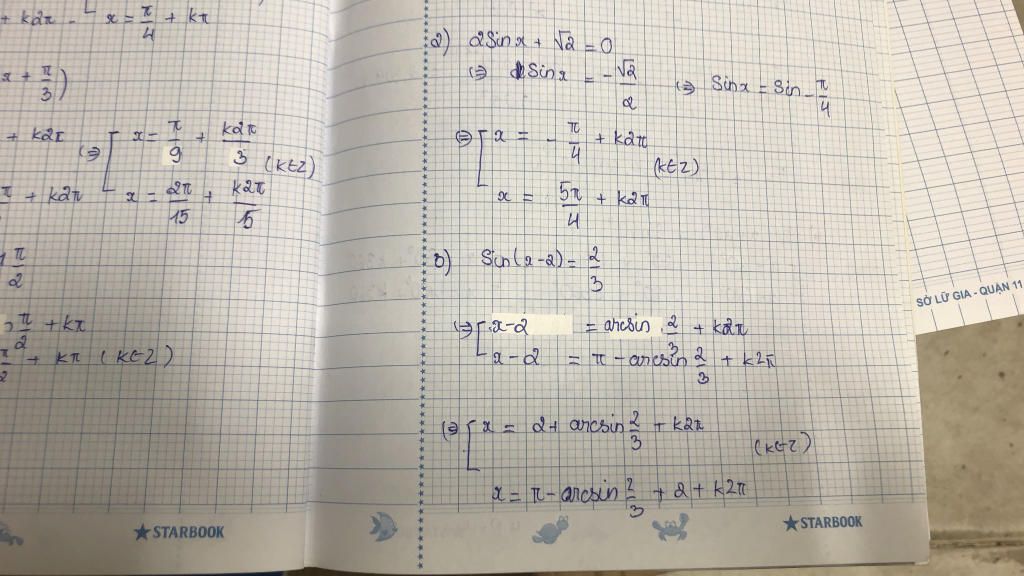 + k2π - [ x = π/4 + kπ
x + π/3)
+ k2π (=> [ x = π/9 + k2π/3 (k∈Z)
π + k2π x = 2π/15 + k2π/15
π/2
π/2 + kπ
π/2 + kπ (k∈Z)
★STARBOOK
2) 2Sinx + √2 = 0
(=> Sinx = -√2/2 (=> Sinx = Sin -π/4
(=> [ x = - π/4 + k2π
(k∈Z)
x = 5π/4 + k2π
3) Sin(x-2) = 2/3
(=> [ x-2 = arcsin 2/3 + k2π
x-2 = π - arcsin 2/3 + k2π
(=> [ x = 2 + arcsin 2/3 + k2π
(k∈Z)
x = π - arcsin 2/3 + 2 + k2π
★STARBOOK
SỞ LỮ GIA - QUẬN 11